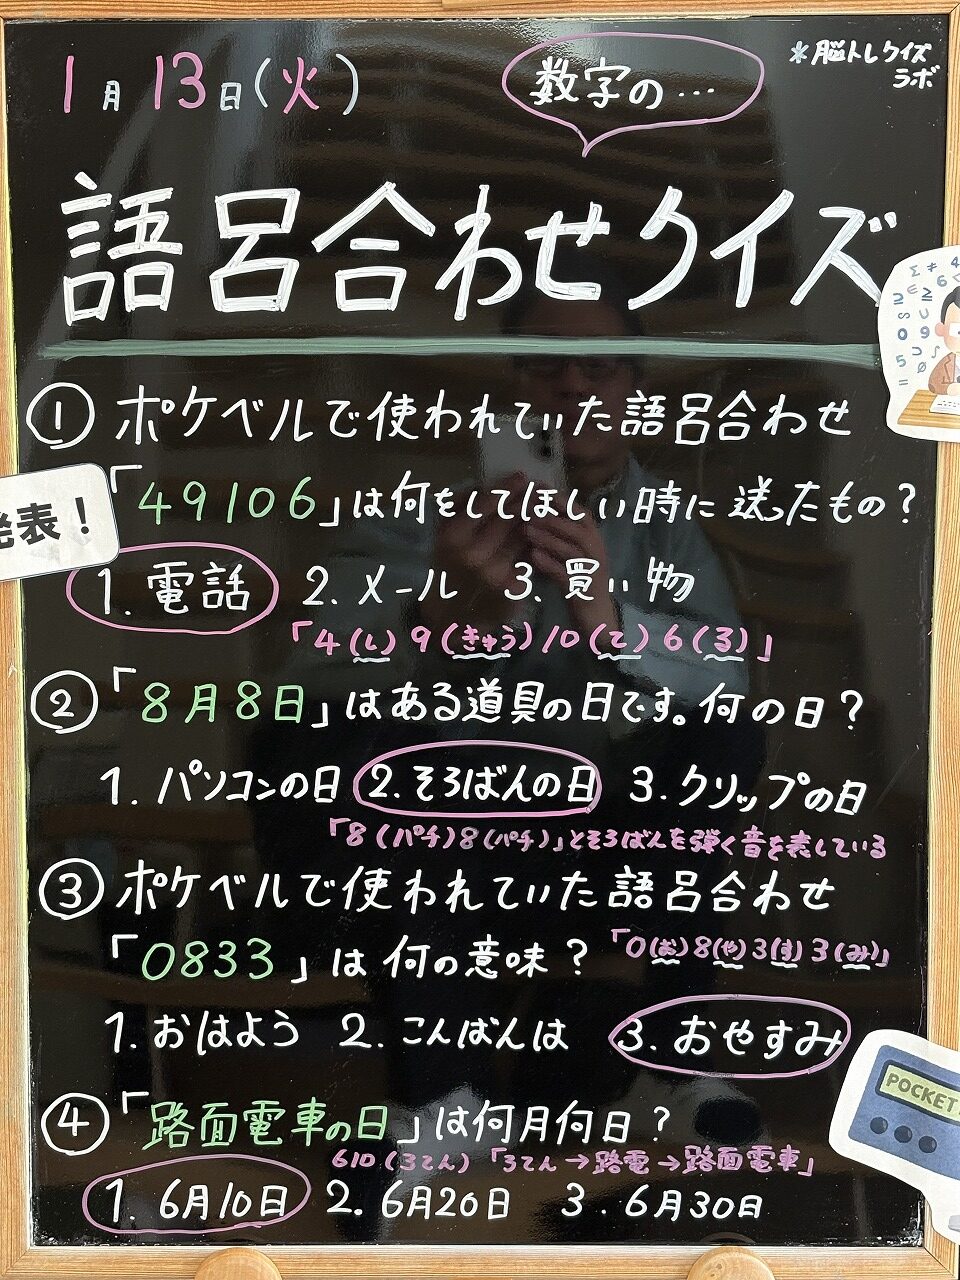 1月13日(火)
数字の…
*脳トレクイズ
ラボ
語呂合わせクイズ
① ポケベルで使われていた語呂合わせ
「49106」は何をしてほしい時に送ったもの？
発表！
1. 電話 2. メール 3. 買い物
「4(し)9(きゅう)10(て)6(る)」
② 「8月8日」はある道具の日です。何の日？
1. パソコンの日 2. そろばんの日 3. クリップの日
「8(パチ)8(パチ)」とそろばんを弾く音を表している
③ ポケベルで使われていた語呂合わせ
「0833」は何の意味？
「0(お)8(や)3(す)3(み)」
1. おはよう 2. こんばんは 3. おやすみ
④ 「路面電車の日」は何月何日？
610(ろてん)「ろてん→路電→路面電車」
1. 6月10日 2. 6月20日 3. 6月30日
POCKET